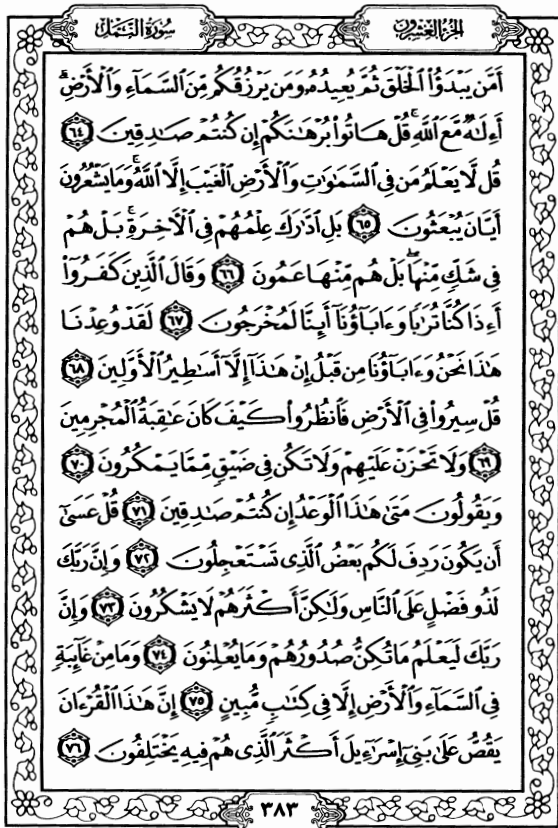 الجزء العشرون
سورة النمل
أَمَّن يَبْدَؤُا۟ الْخَلْقَ ثُمَّ يُعِيدُهُۥ وَمَن يَرْزُقُكُم مِّنَ السَّمَآءِ وَالْأَرْضِ ۗ
أَءِلَٰهٌ مَّعَ اللَّهِ ۚ قُلْ هَاتُوا۟ بُرْهَٰنَكُمْ إِن كُنتُمْ صَٰدِقِينَ ٦٤
قُل لَّا يَعْلَمُ مَن فِى السَّمَٰوَٰتِ وَالْأَرْضِ الْغَيْبَ إِلَّا اللَّهُ ۚ وَمَا يَشْعُرُونَ
أَيَّانَ يُبْعَثُونَ ٦٥ بَلِ ادَّٰرَكَ عِلْمُهُمْ فِى الْءَاخِرَةِ ۚ بَلْ هُمْ
فِى شَكٍّ مِّنْهَا ۖ بَلْ هُم مِّنْهَا عَمُونَ ٦٦ وَقَالَ الَّذِينَ كَفَرُوٓا۟
أَءِذَا كُنَّا تُرَٰبًا وَءَابَآؤُنَآ أَئِنَّا لَمُخْرَجُونَ ٦٧ لَقَدْ وُعِدْنَا
هَٰذَا نَحْنُ وَءَابَآؤُنَا مِن قَبْلُ إِنْ هَٰذَآ إِلَّآ أَسَٰطِيرُ الْأَوَّلِينَ ٦٨
قُلْ سِيرُوا۟ فِى الْأَرْضِ فَانظُرُوا۟ كَيْفَ كَانَ عَٰقِبَةُ الْمُجْرِمِينَ
٦٩ وَلَا تَحْزَنْ عَلَيْهِمْ وَلَا تَكُن فِى ضَيْقٍ مِّمَّا يَمْكُرُونَ ٧٠
وَيَقُولُونَ مَتَىٰ هَٰذَا الْوَعْدُ إِن كُنتُمْ صَٰدِقِينَ ٧١ قُلْ عَسَىٰٓ
أَن يَكُونَ رَدِفَ لَكُم بَعْضُ الَّذِى تَسْتَعْجِلُونَ ٧٢ وَإِنَّ رَبَّكَ
لَذُو فَضْلٍ عَلَى النَّاسِ وَلَٰكِنَّ أَكْثَرَهُمْ لَا يَشْكُرُونَ ٧٣ وَإِنَّ
رَبَّكَ لَيَعْلَمُ مَا تُكِنُّ صُدُورُهُمْ وَمَا يُعْلِنُونَ ٧٤ وَمَا مِنْ غَآئِبَةٍ
فِى السَّمَآءِ وَالْأَرْضِ إِلَّا فِى كِتَٰبٍ مُّبِينٍ ٧٥ إِنَّ هَٰذَا الْقُرْءَانَ
يَقُصُّ عَلَىٰ بَنِىٓ إِسْرَٰٓءِيلَ أَكْثَرَ الَّذِى هُمْ فِيهِ يَخْتَلِفُونَ ٧٦
٣٨٣